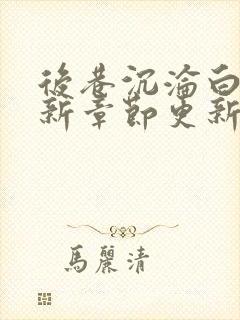 後巷沉淪白
新章節更新
馬麗清